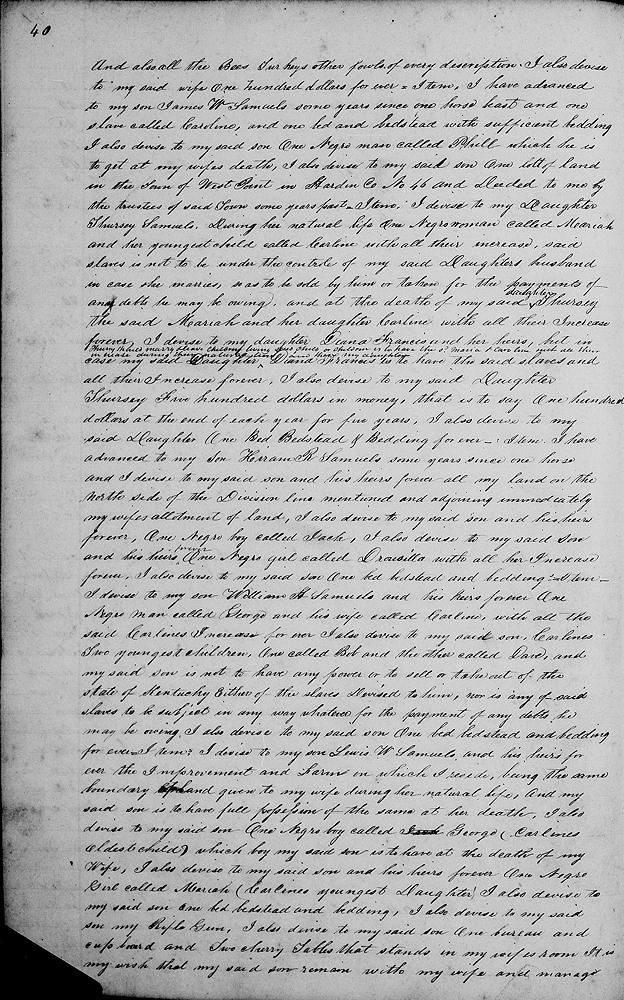 40
And also all the Bees Turkeys other fowls of every description. I also devise
to my said wife One hundred dollars for ever = Item, I have advanced
to my son James W Samuels some years since one horse beast and one
slave called Caroline, and one bed and bedstead with sufficient bedding
I also devise to my said son One Negro man called Phill which he is
to get at my wifes death, I also devise to my said son One lott of land
in the Town of West Point in Hardin Co No 46 and Deeded to me by
the trustees of said Town some years past = Item. I devise to my Daughter
Thursey Samuels, During her natural life One Negro woman called Mariah
and her youngest child called Carline with all their increase, said
slaves is not to be under the controle of my said Daughters husband
in case she marries, so as to be sold by him or taken for the payments of
any debts he may be owing, and at the death of my said daughter Thursey
the said Mariah and her daughter Carline with all their Increase
forever, I devise to my daughter Diana Frances and her heirs, but in
case my said Daughter Diana Frances is to have the said slaves and
all their Increase forever, I also devise to my said Daughter
Thursey Five hundred dollars in money, that is to say One hundred
dollars at the end of each year for five years, I also devise to my
said Daughter One Bed Bedstead & Bedding forever = Item. I have
advanced to my Son Hirram R Samuels some years since one horse
and I devise to my said son and his heirs forever all my land on the
North side of the Division line mentioned and adjoining immediately
my wifes allotment of land, I also devise to my said son and his heirs
forever, One Negro boy called Jack, I also devise to my said Son
and his heirs forever One Negro girl called Drusilla with all her Increase
forever, I also devise to my said son One bed bedstead and bedding = Item =
I devise to my son William H Samuels and his heirs forever One
Negro man called George and his wife called Carline, with all the
said Carlines Increase for ever I also devise to my said son, Carlines
Two youngest children, One called Bob and the other called Dave, and
my said son is not to have any power or to sell or take out of the
state of Kentucky Either of the slaves Devised to him, nor is any of said
slaves to be subject in any way whatever for the payment of any debts he
may be owing I also devise to my said son One bed bedstead and bedding
for ever = Item: I devise to my son Lewis W Samuels and his heirs for
ever the Improvement and Farm on which I reside, being the same
boundary of land given to my wife during her natural life, and my
said son is to have full possession of the same at her death, I also
devise to my said son One Negro boy called George (Carlines
Oldest child) which boy my said son is to have at the death of my
Wife, I also devise to my said son and his heirs forever One Negro
Girl called Meriah (Carlines youngest Daughter) I also devise to
my said son one bed bedstead and bedding, I also devise to my said
son my Rifle Gun, I also devise to my said son One bureau and
cupboard and Two cherry Tables that stands in my wifes room It is
my wish that my said son remain with my wife and manage